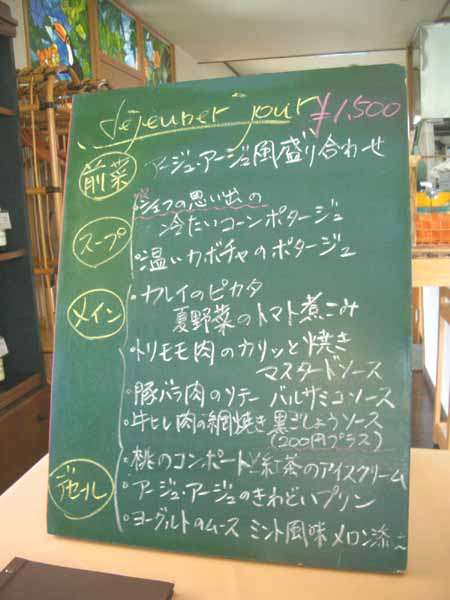 déjeuner jour ¥1,500
前菜 アージュ・アージュ風盛り合わせ
スープ ・シェフの思い出の
冷たいコーンポタージュ
・温いカボチャのポタージュ
メイン ・カレイのピカタ
夏野菜のトマト煮こみ
・トリモモ肉のカリッと焼き
マスタードソース
・豚バラ肉のソテー バルサミコソース
・牛ヒレ肉の網焼き 黒ごしょうソース
(200円プラス)
デセール ・桃のコンポートと紅茶のアイスクリーム
・アージュ・アージュのきわどいプリン
・ヨーグルトのムース ミント風味メロン添え